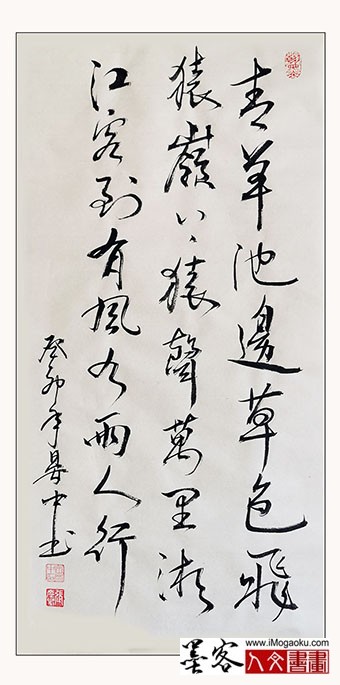 青草池邊草色飛
猿嶺上猿聲萬里湘
江客到有風有雨人行
癸卯年中书
墨客
www.iMogaoku.com
人文書畫